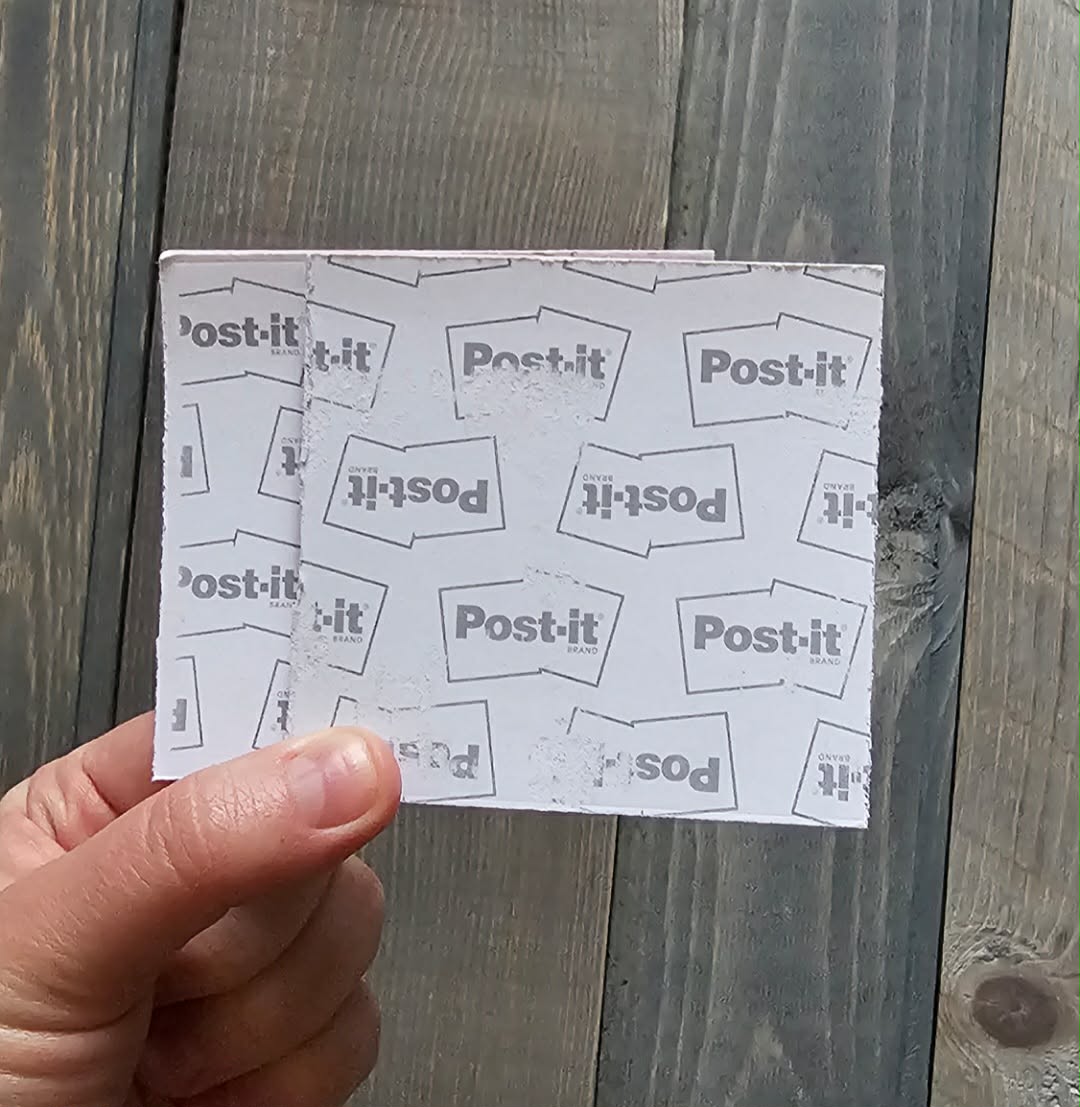 Post-it BRAND
t-it
Post-it
Post-it
it BRAND
Post-it BRAND
Post-it BRAND
t-it BRAND
Post-it
t-it BRAND
Post-it BRAND
Post-it BRAND
Post-it
it BRAND